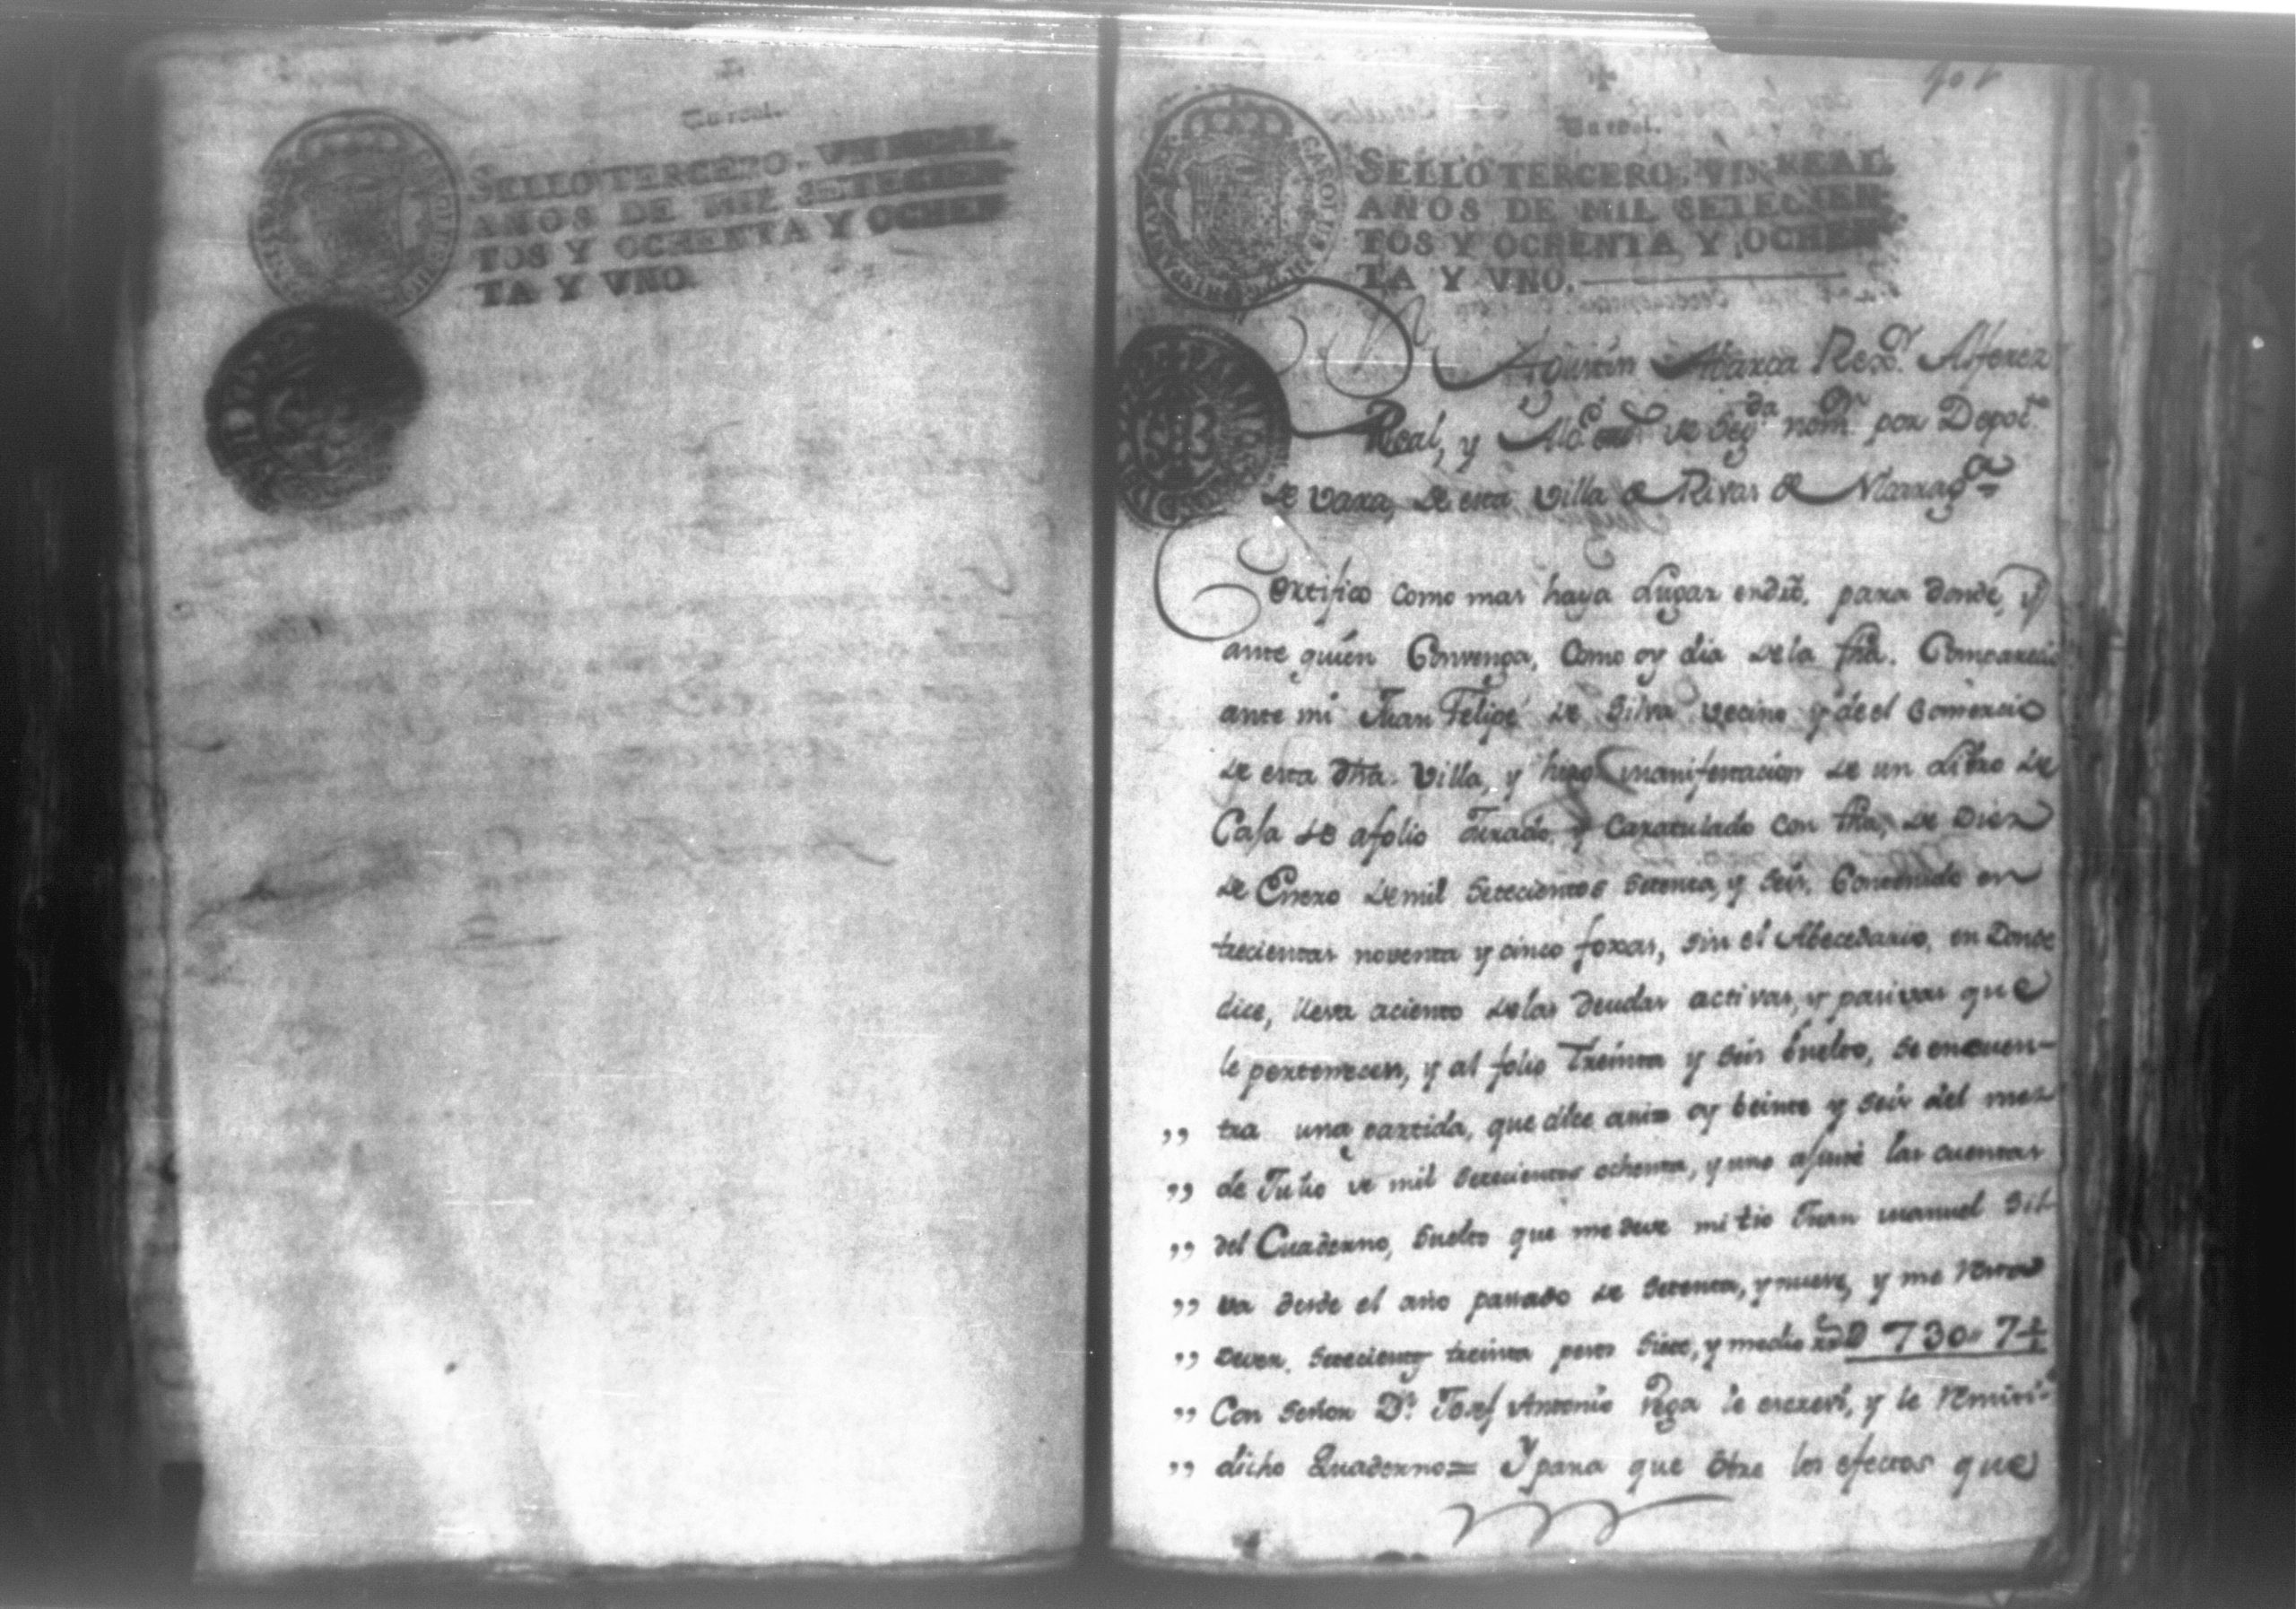 Un real.
SELLO TERCERO, VN REAL,
AÑOS DE MIL SETECIEN-
TOS Y OCHENTA Y OCHEN
TA Y VNO.
Un real.
SELLO TERCERO, VN REAL,
AÑOS DE MIL SETECIEN-
TOS Y OCHENTA Y OCHEN
TA Y VNO.
Dn Agustin Abarca Rexor. Alferez
Real, y Alce. ordo. de Segda nomon por Depoto
de Vara, de esta Villa de Rivas de Nicaragua
Certifico como mas haya Lugar en dro. para donde, y
ante quien Convenga, Como oy dia de la fha. Comparecio
ante mi Juan Felipe de Silva vecino y de el Comercio
de esta dha. Villa, y hizo manifestacion de un Libro de
Caja de afolio Jurado y Caratulado con fha, de Diez
de Enero de mil Setecientos Setenta, y Seis. Contenido en
trecientas noventa y cinco foxas, sin el Abecedario, en Donde
dice, lleva aciento de las Deudas activas, y pasivas que
le pertenecen, y al folio Treinta y seis buelto, se encuen-
,, tra una partida, que dice asi= oy beinte y seis del mes
,, de Julio de mil Setecientos ochenta, y uno ajusté las cuentas
,, del Cuaderno, Suelto que me deve mi tio Juan manuel Sil-
,, va desde el año passado de Setenta, y nueve, y me
,, Dever. Setecientos treinta pesos Siete, y medio rs 730,, 7½
,, Con Señor Dn. Josef Antonio Vega le escreví, y le Remiti
,, dicho Quaderno= Y para que Obre los efectos que